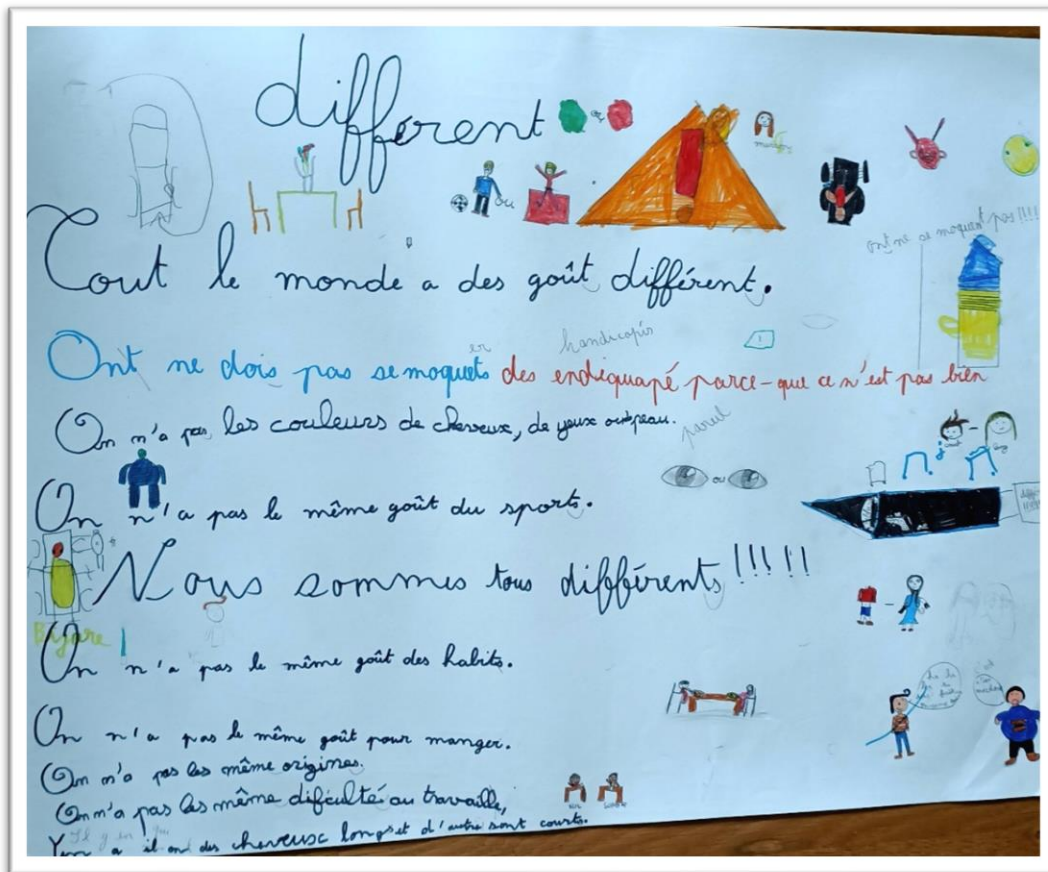 différent
ou
ou
Tout le monde a des goût différent.
ont ne se moquent pas !!!!
er
handicapés
Ont ne dois pas se moquets des endiquapé parce-que ce n'est pas bien
On n'a pas les couleurs de cheveux, de yeux ou peau.
pareil
ou
On n'a pas le même goût du sports.
Nous sommes tous différents !!!!!
Bizare
On n'a pas le même goût des habits.
On n'a pas le même goût pour manger.
On n'a pas les même origines.
On n'a pas les même dificulté au travaille,
a il on des cheveux longs et d'autre sont courts.